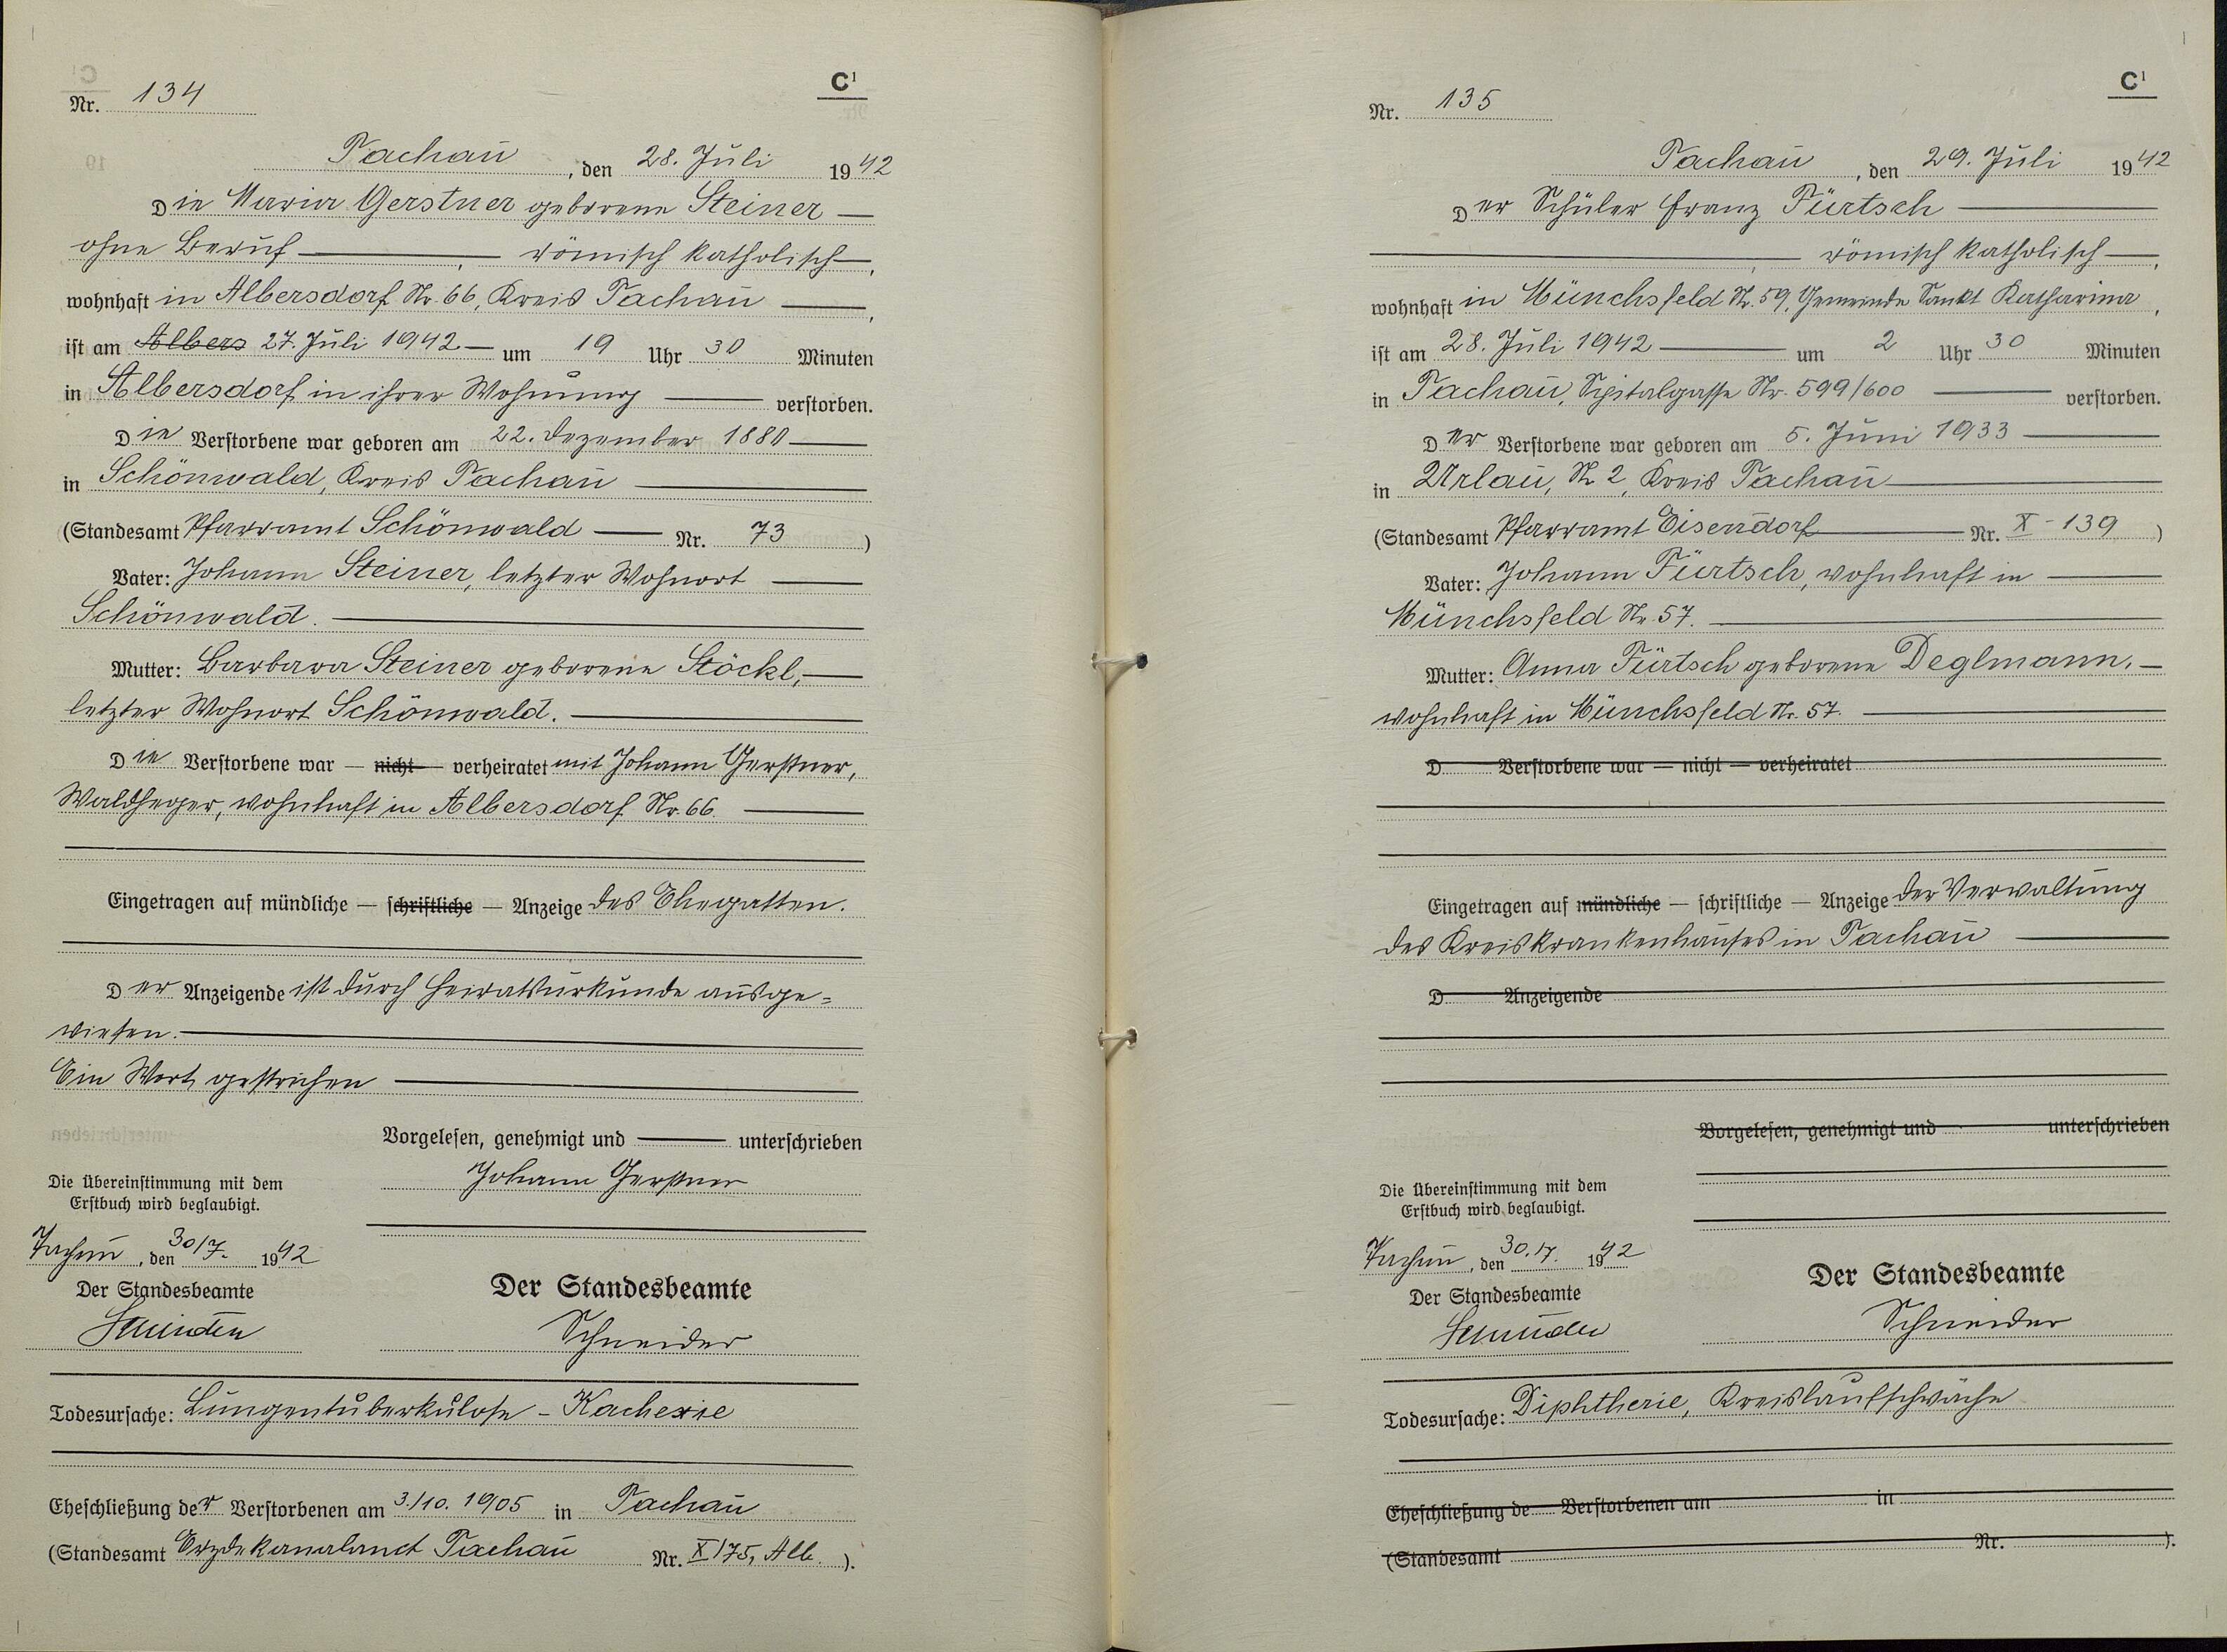 C¹
Nr. 134
Tachau, den 28. Juli 1942
Die Maria Gerstner geborene Steiner
ohne Beruf, römisch katholisch,
wohnhaft in Albersdorf Nr. 66, Kreis Tachau,
ist am Albers 27. Juli 1942 um 19 Uhr 30 Minuten
in Albersdorf in ihrer Wohnung verstorben.
Die Verstorbene war geboren am 22. Dezember 1880
in Schönwald, Kreis Tachau
(Standesamt Pfarramt Schönwald Nr. 73)
Vater: Johann Steiner, letzter Wohnort
Schönwald.
Mutter: Barbara Steiner geborene Stöckl,
letzter Wohnort Schönwald.
Die Verstorbene war — nicht — verheiratet mit Johann Gerstner,
Waldheger, wohnhaft in Albersdorf Nr. 66.
Eingetragen auf mündliche — schriftliche — Anzeige des Ehegatten.
Der Anzeigende ist durch Heiratsurkunde ausge=
wiesen.
Ein Wort gestrichen
Vorgelesen, genehmigt und unterschrieben
Johann Gerstner
Die Übereinstimmung mit dem
Erstbuch wird beglaubigt.
Tachau, den 30/7. 1942
Der Standesbeamte
Der Standesbeamte
Schneider
Todesursache: Lungentuberkulose - Kachexie
Eheschließung der Verstorbenen am 3./10. 1905 in Tachau
(Standesamt Erzdekanalamt Tachau Nr. X/75, Alb.).
C¹
Nr. 135
Tachau, den 29. Juli 1942
Der Schüler Franz Fürtsch
römisch katholisch,
wohnhaft in Münchsfeld Nr. 59, Gemeinde Sankt Katharina,
ist am 28. Juli 1942 um 2 Uhr 30 Minuten
in Tachau, Spitalgasse Nr. 599/600 verstorben.
Der Verstorbene war geboren am 5. Juni 1933
in Urlau, Nr. 2, Kreis Tachau
(Standesamt Pfarramt Eisendorf Nr. X - 139)
Vater: Johann Fürtsch, wohnhaft in
Münchsfeld Nr. 57.
Mutter: Anna Fürtsch geborene Deglmann,
wohnhaft in Münchsfeld Nr. 57.
D Verstorbene war — nicht — verheiratet
Eingetragen auf mündliche — schriftliche — Anzeige der Verwaltung
des Kreiskrankenhauses in Tachau
D Anzeigende
Vorgelesen, genehmigt und unterschrieben
Die Übereinstimmung mit dem
Erstbuch wird beglaubigt.
Tachau, den 30./7. 1942
Der Standesbeamte
Der Standesbeamte
Schneider
Todesursache: Diphtherie, Kreislaufschwäche
Eheschließung de Verstorbenen am in
(Standesamt Nr. ).